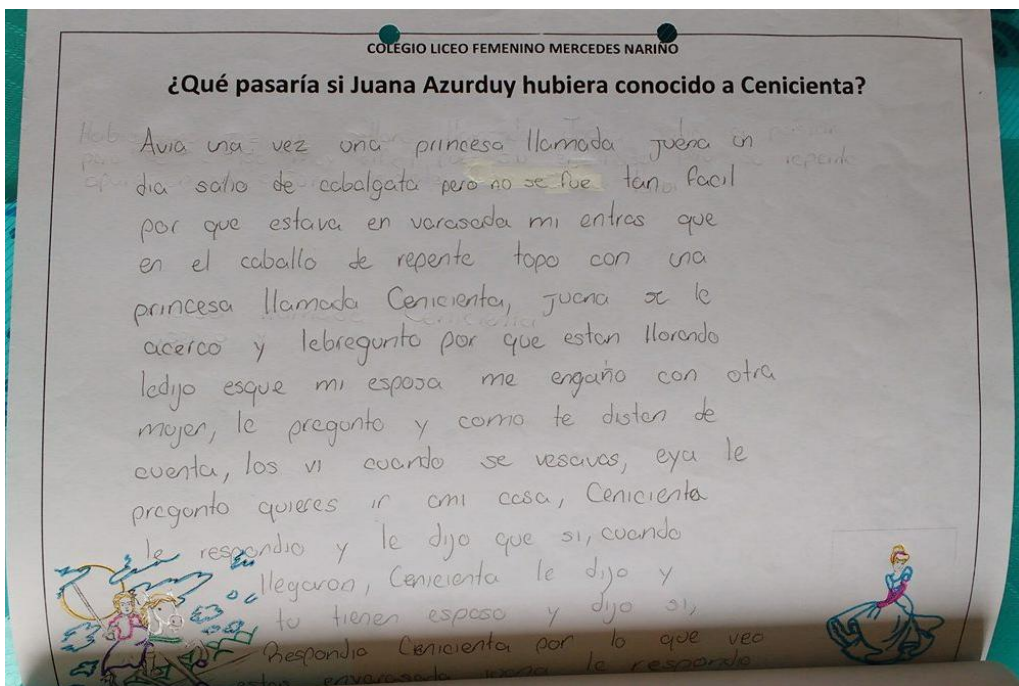 COLEGIO LICEO FEMENINO MERCEDES NARIÑO
¿Qué pasaría si Juana Azurduy hubiera conocido a Cenicienta?
Avia una vez una princesa llamada juana un
dia salio de cabalgata pero no se fue tan facil
por que estava en varasada mi entras que
en el caballo de repente topo con una
princesa llamada Cenicienta, juana se le
acerco y lebregunto por que estan llorando
ledijo esque mi esposa me engaño con otra
mujer, le pregonto y como te disten de
cuenta, los vi cuando se vesavas, eya le
pregonto quieres ir ami casa, Cenicienta
le respondio y le dijo que si, cuando
llegaron, Cenicienta le dijo y
tu tienen esposo y dijo si,
Respondio Cenicienta por lo que veo
estas envarasada juana le respondo